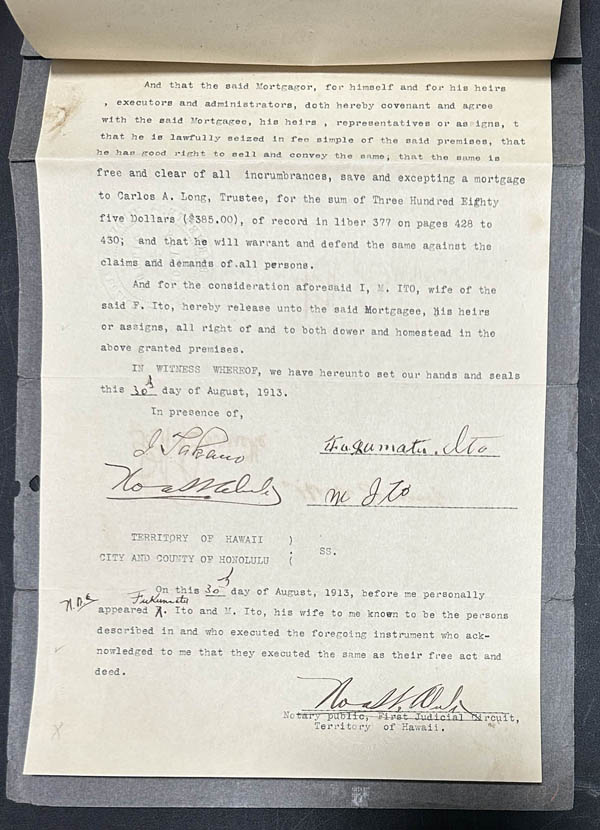 And that the said Mortgagor, for himself and for his heirs
, executors and administrators, doth hereby covenant and agree
with the said Mortgagee, his heirs , representatives or assigns, t
that he is lawfully seized in fee simple of the said premises, that
he has good right to sell and convey the same; that the same is
free and clear of all incrumbrances, save and excepting a mortgage
to Carlos A. Long, Trustee, for the sum of Three Hundred Eighty
five Dollars ($385.00), of record in liber 377 on pages 428 to
430; and that he will warrant and defend the same against the
claims and demands of all persons.
And for the consideration aforesaid I, M. ITO, wife of the
said F. Ito, hereby release unto the said Mortgagee, his heirs
or assigns, all right of and to both dower and homestead in the
above granted premises.
IN WITNESS WHEREOF, we have hereunto set our hands and seals
this 30th day of August, 1913.
In presence of,
Fukumatu. Ito
M Ito
TERRITORY OF HAWAII )
CITY AND COUNTY OF HONOLULU ( SS.
On this 30th day of August, 1913, before me personally
Fukumatu
appeared Ito and M. Ito, his wife to me known to be the persons
described in and who executed the foregoing instrument who ack-
nowledged to me that they executed the same as their free act and
deed.
Notary public, First Judicial Circuit,
Territory of Hawaii.